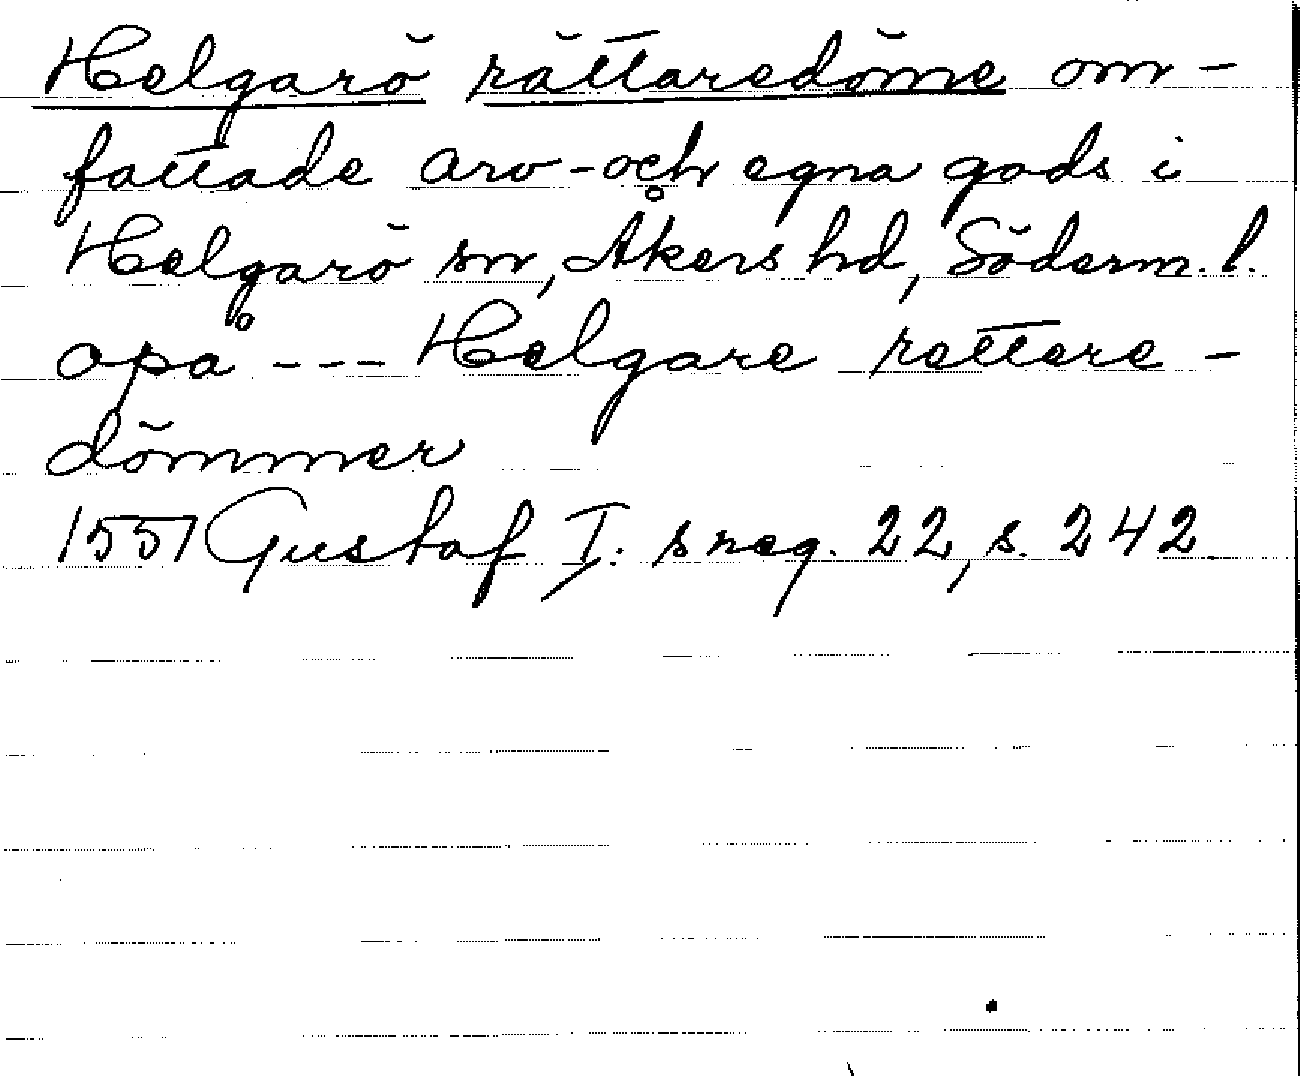 Helgarö rättaredöme om-
fattade arv-och egna gods i
Helgarö sn, Åkers hd, Söderm. l.
opå --- Helgare rettere-
dömmer
1551 Gustaf I:s reg. 22, s. 242